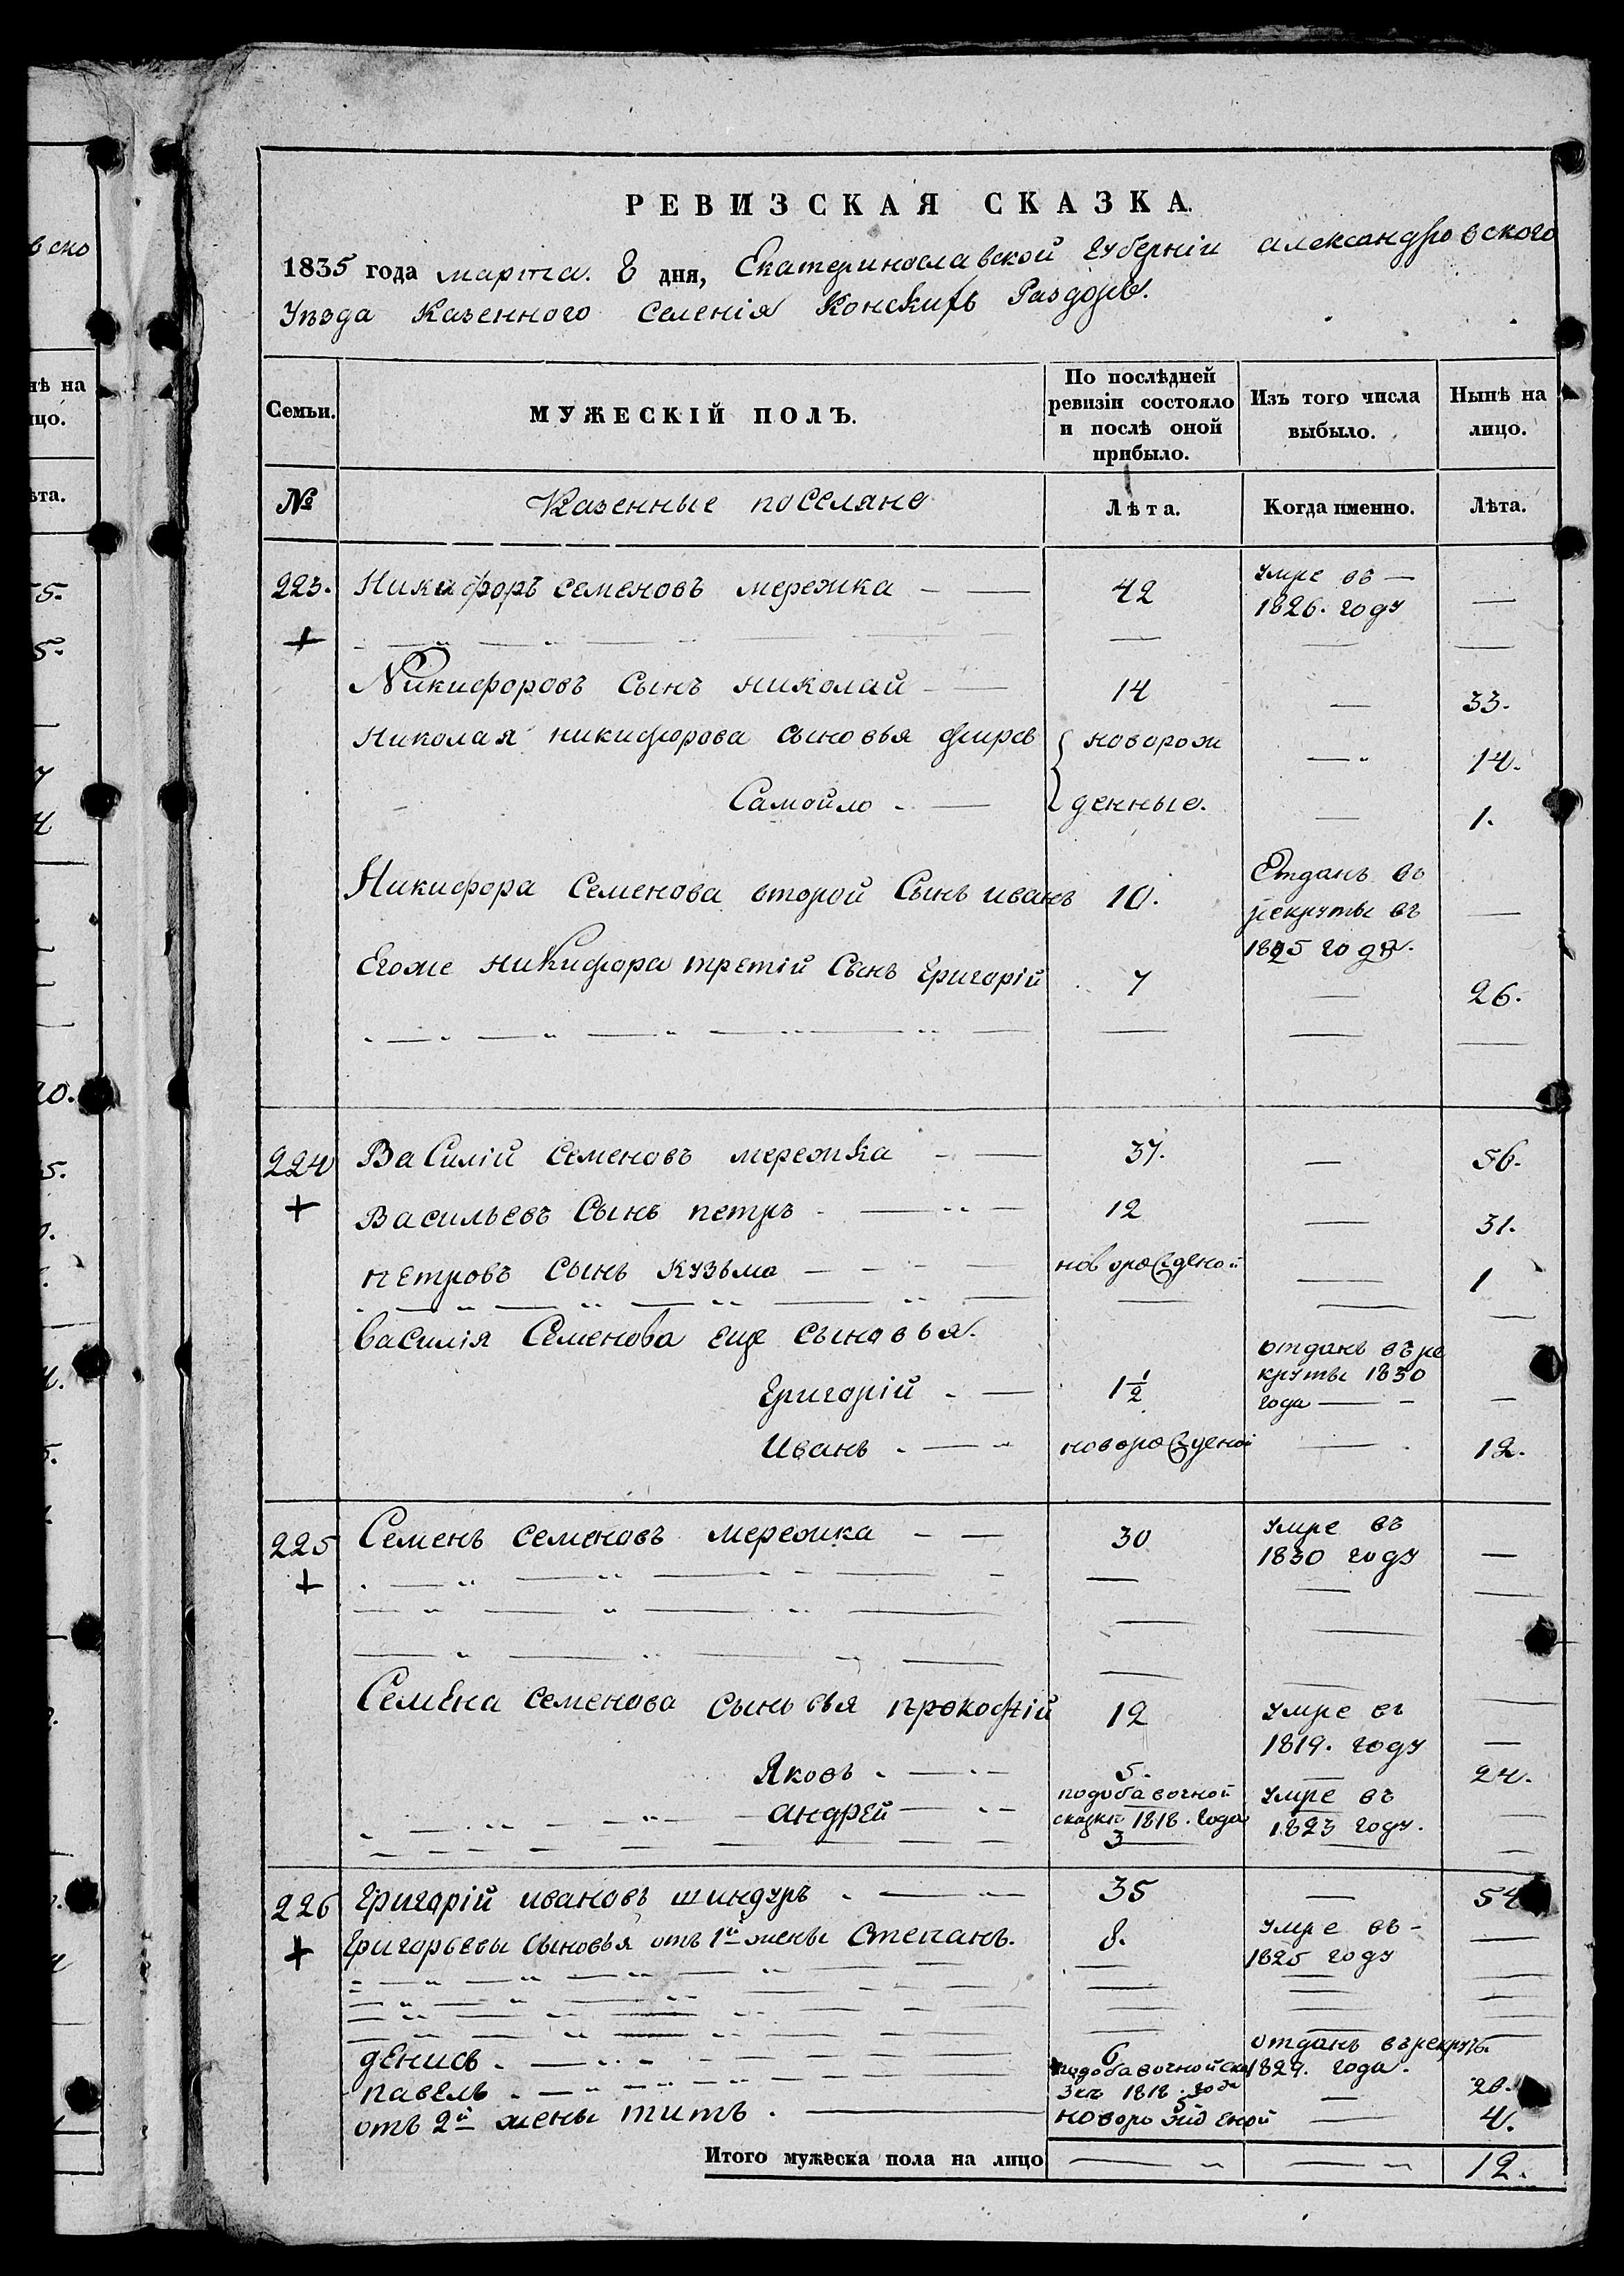 вско
нѣ на
цо.
ѣта.
РЕВИЗСКАЯ СКАЗКА.
1835 года марта. 8 дня, Екатеринославской губерніи александровского
Уѣзда Казенного селенія Конскихъ Раздоръ.
Семьи.
МУЖЕСКІЙ ПОЛЪ.
По послѣдней ревизіи состояло и послѣ оной прибыло.
Изъ того числа выбыло.
Нынѣ на лицо.
№ Казенные поселяне Лѣта. Когда именно. Лѣта.
223. Никифоръ семеновъ мережка — 42 умре въ — 1826. году —
+
Никифоровъ сынъ николай — 14 — 33.
Николая никифорова сыновья фирсъ новорож — 14.
Самойло — денные. — 1.
Никифора Семенова второй Сынъ иванъ 10. Отданъ въ рекруты въ 1825 годѣ. —
Егоже никифора третій Сынъ григорій 7 — 26.
224 Василій семеновъ мережка — 37. — 56.
+ Васильевъ Сынъ петръ — 12 — 31.
петровъ сынъ кузьма — новорожденой — 1
василія Семенова еще сыновья.
григорій — 1 1/2 отданъ въ ре круты 1830 года —
Иванъ — новорожденой — 12.
225 Семенъ семеновъ мережка — 30 умре въ 1830 году —
+
Семена семенова сыновья прокофій 12 умре въ 1819. году —
Яковъ — 5. — 24.
андрей — подобавочной сказкѣ 1818. года 3 умре въ 1823 году. —
226 григорій ивановъ шиндуръ — 35 — 54
+ григорьевы сыновья отъ 1й жены Степанъ. 8. умре въ — 1825 году —
денисъ — 6 отданъ въ рекруты 1829. года.
павелъ — подобавочной ска зкѣ 1818. года 5 — 20.
отъ 2й жены титъ. — новорожденой — 4.
Итого мужеска пола на лицо — — 12.